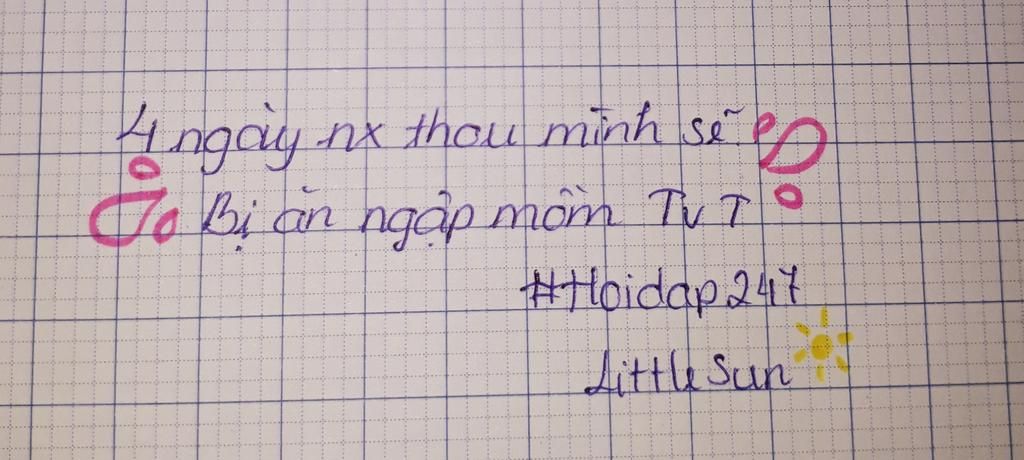 4 ngày nx thou mình sẽ
Bị ăn ngập mồm TvT
#Hoidap247
Little Sun